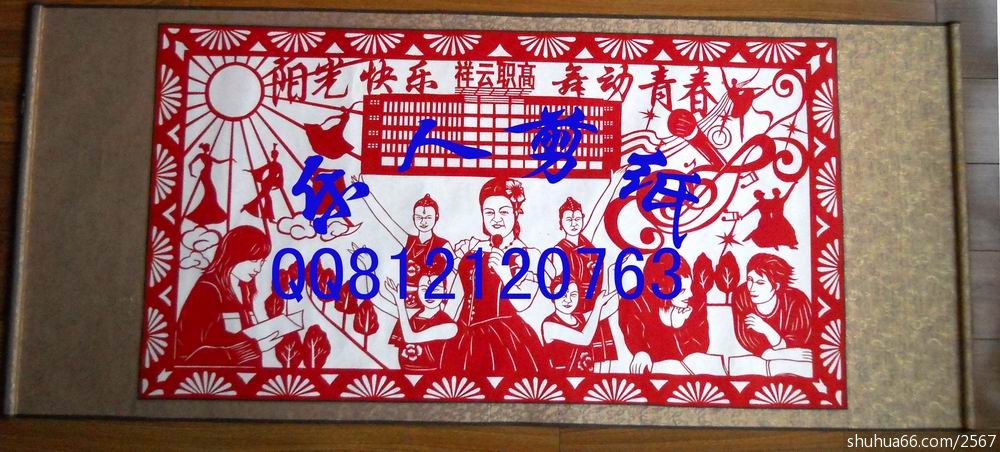 阳光 快乐 祥云职高 舞动青春
人剪纸
QQ812120763
shuhua66.com/2567